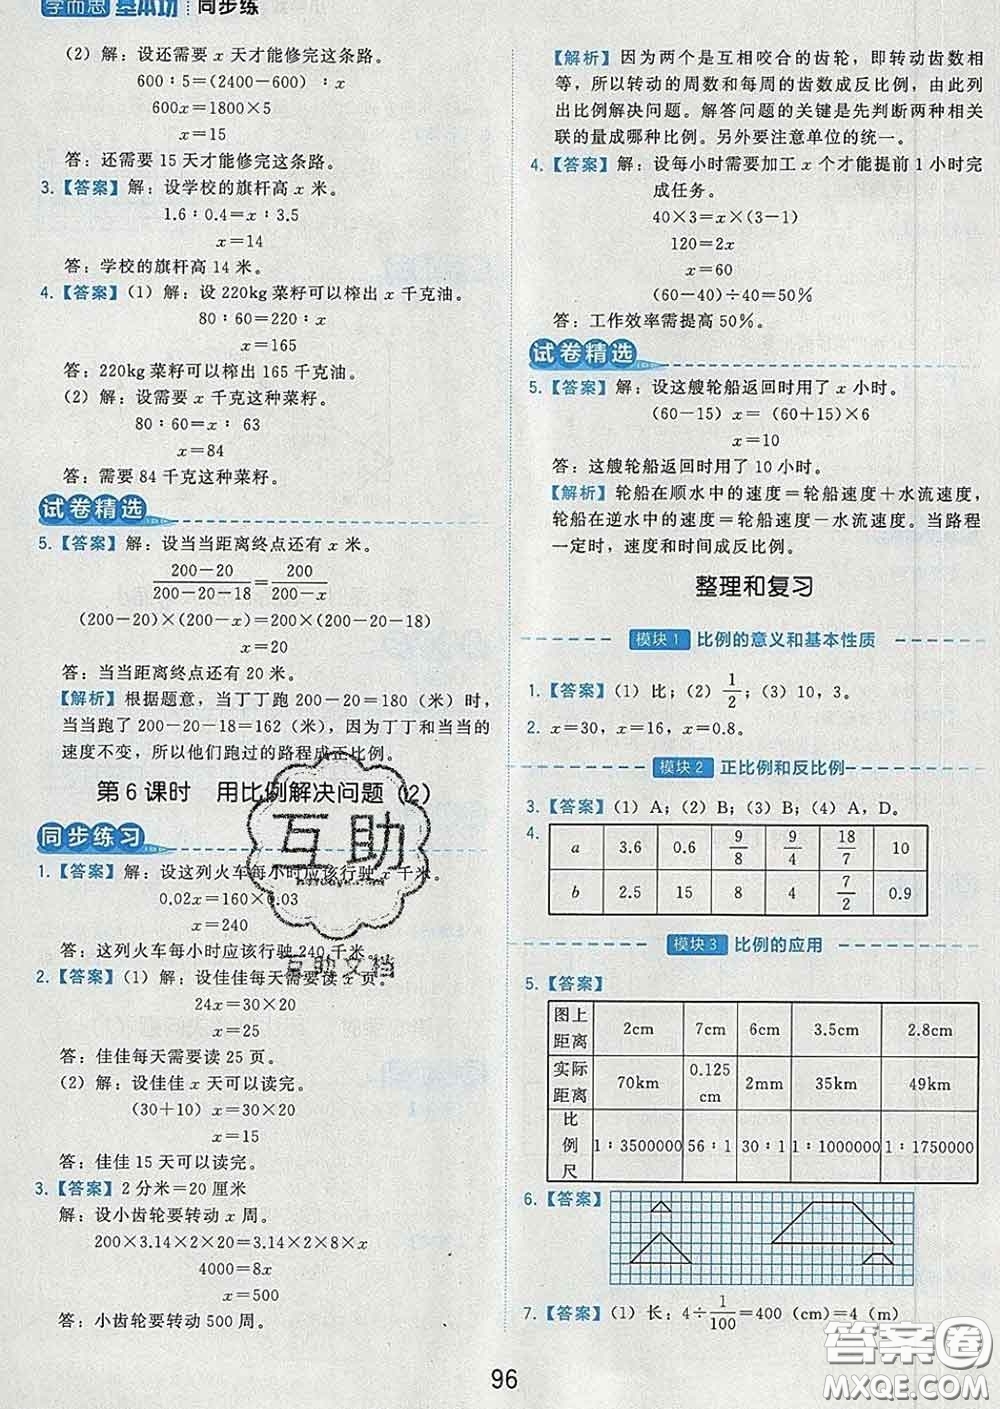 学而思 基本功 同步练
(2) 解：设还需要 x 天才能修完这条路。
600∶5=(2400-600)∶x
600x=1800×5
x=15
答：还需要 15 天才能修完这条路。
3.【答案】解：设学校的旗杆高 x 米。
1.6∶0.4=x∶3.5
x=14
答：学校的旗杆高 14 米。
4.【答案】(1) 解：设 220kg 菜籽可以榨出 x 千克油。
80∶60=220∶x
x=165
答：220kg 菜籽可以榨出 165 千克油。
(2) 解：设需要 x 千克这种菜籽。
80∶60=x∶63
x=84
答：需要 84 千克这种菜籽。
试卷精选
5.【答案】解：设当当距离终点还有 x 米。
(200-20)/(200-20-18)=200/(200-x)
(200-20)×(200-x)=200×(200-20-18)
x=20
答：当当距离终点还有 20 米。
【解析】根据题意，当丁丁跑 200-20=180（米）时，
当当跑了 200-20-18=162（米），因为丁丁和当当的
速度不变，所以他们跑过的路程成正比例。
第 6 课时 用比例解决问题（2）
同步练习
1.【答案】解：设这列火车每小时应该行驶 x 千米。
0.02x=160×0.03
x=240
答：这列火车每小时应该行驶 240 千米。
2.【答案】(1) 解：设佳佳每天需要读 x 页。
24x=30×20
x=25
答：佳佳每天需要读 25 页。
(2) 解：设佳佳 x 天可以读完。
(30+10) x=30×20
x=15
答：佳佳 15 天可以读完。
3.【答案】2 分米=20 厘米
解：设小齿轮要转动 x 周。
200×3.14×2×20=3.14×2×8×x
4000=8x
x=500
答：小齿轮要转动 500 周。
【解析】因为两个是互相咬合的齿轮，即转动齿数相
等，所以转动的周数和每周的齿数成反比例，由此列
出比例解决问题。解答问题的关键是先判断两种相关
联的量成哪种比例。另外要注意单位的统一。
4.【答案】解：设每小时需要加工 x 个才能提前 1 小时完
成任务。
40×3=x×(3-1)
120=2x
x=60
(60-40)÷40=50%
答：工作效率需提高 50%。
试卷精选
5.【答案】解：设这艘轮船返回时用了 x 小时。
(60-15) x= (60+15)×6
x=10
答：这艘轮船返回时用了 10 小时。
【解析】轮船在顺水中的速度=轮船速度+水流速度，
轮船在逆水中的速度=轮船速度-水流速度。当路程
一定时，速度和时间成反比例。
整理和复习
模块 1 比例的意义和基本性质
1.【答案】(1) 比；(2) 1/2；(3) 10，3。
2. x=30，x=16，x=0.8。
模块 2 正比例和反比例
3.【答案】(1) A；(2) B；(3) B；(4) A，D。
4.
a 3.6 0.6 9/8 9/4 18/7 10
b 2.5 15 8 4 7/2 0.9
模块 3 比例的应用
5.【答案】
图上距离 2cm 7cm 6cm 3.5cm 2.8cm
实际距离 70km 0.125cm 2mm 35km 49km
比例尺 1∶3500000 56∶1 30∶1 1∶1000000 1∶1750000
6.【答案】
7.【答案】(1) 长：4÷1/100=400（cm）=4（m）
96
互助
互助文档
答案圈
MXQE.COM